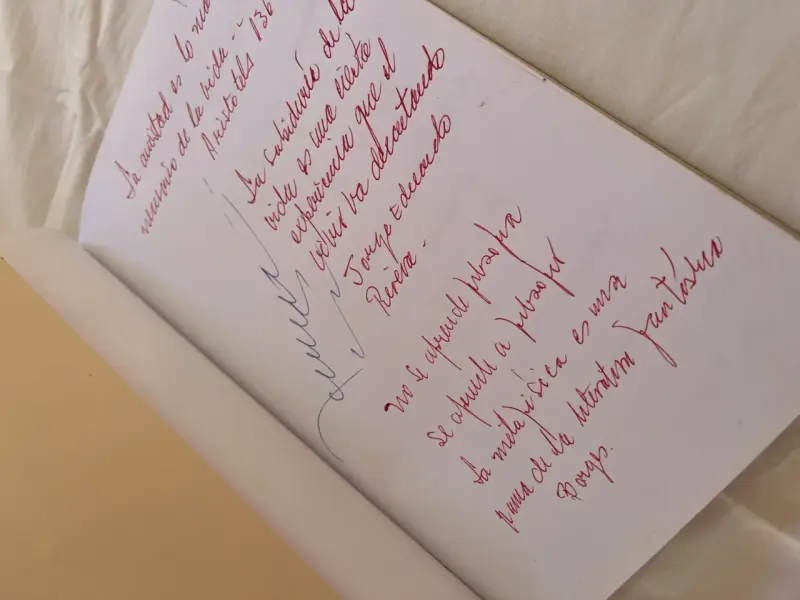 La amistad es lo
de la vida -
Aristoteles 136
La sabiduría de la
vida es una cierta
experiencia que el
vivir va decantando
Jorge Eduardo
Rivera -
no se aprende filosofia
se aprende a filosofar
La metafísica es una
rama de la literatura fantástica
Borges.